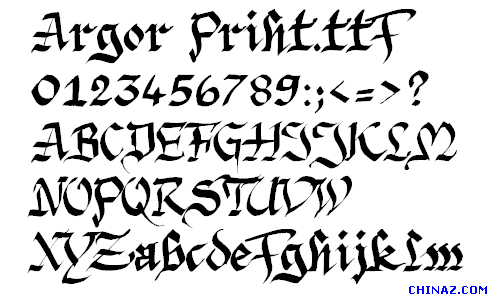 Argor Priht.ttf
0123456789:;<=>?
ABCDEFGHIJKLM
NOPQRSTUVW
XYZabcdefghijklm
CHINAZ.COM